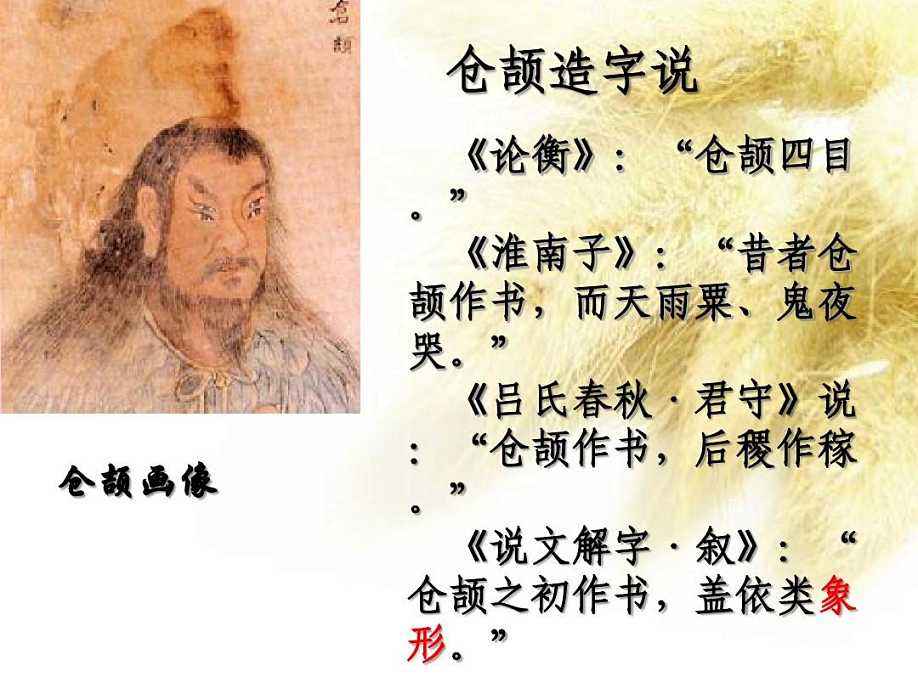 仓颉
仓颉造字说
《论衡》：“仓颉四目
。”
《淮南子》：“昔者仓
颉作书，而天雨粟、鬼夜
哭。”
《吕氏春秋·君守》说
：“仓颉作书，后稷作稼
。”
《说文解字·叙》：“
仓颉之初作书，盖依类象
形。”
仓颉画像